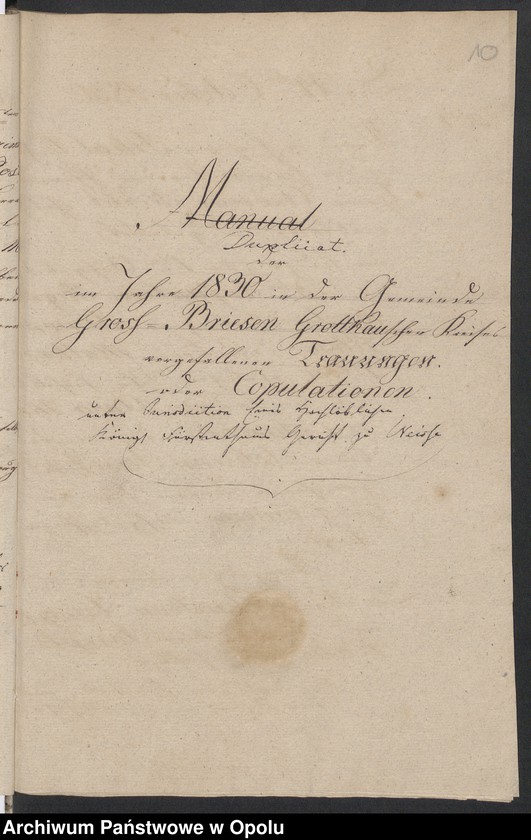 10
Manual
Duplicat.
der
im Jahre 1830 in der Gemeinde
Gross-Briesen Grottkauschen Kreises
vorgefallenen Trauungen.
oder Copulationen.
unter Jurisdiction Hochlöblichen
Königl Fürstenthums Gericht zu Neisse
Archiwum Państwowe w Opolu